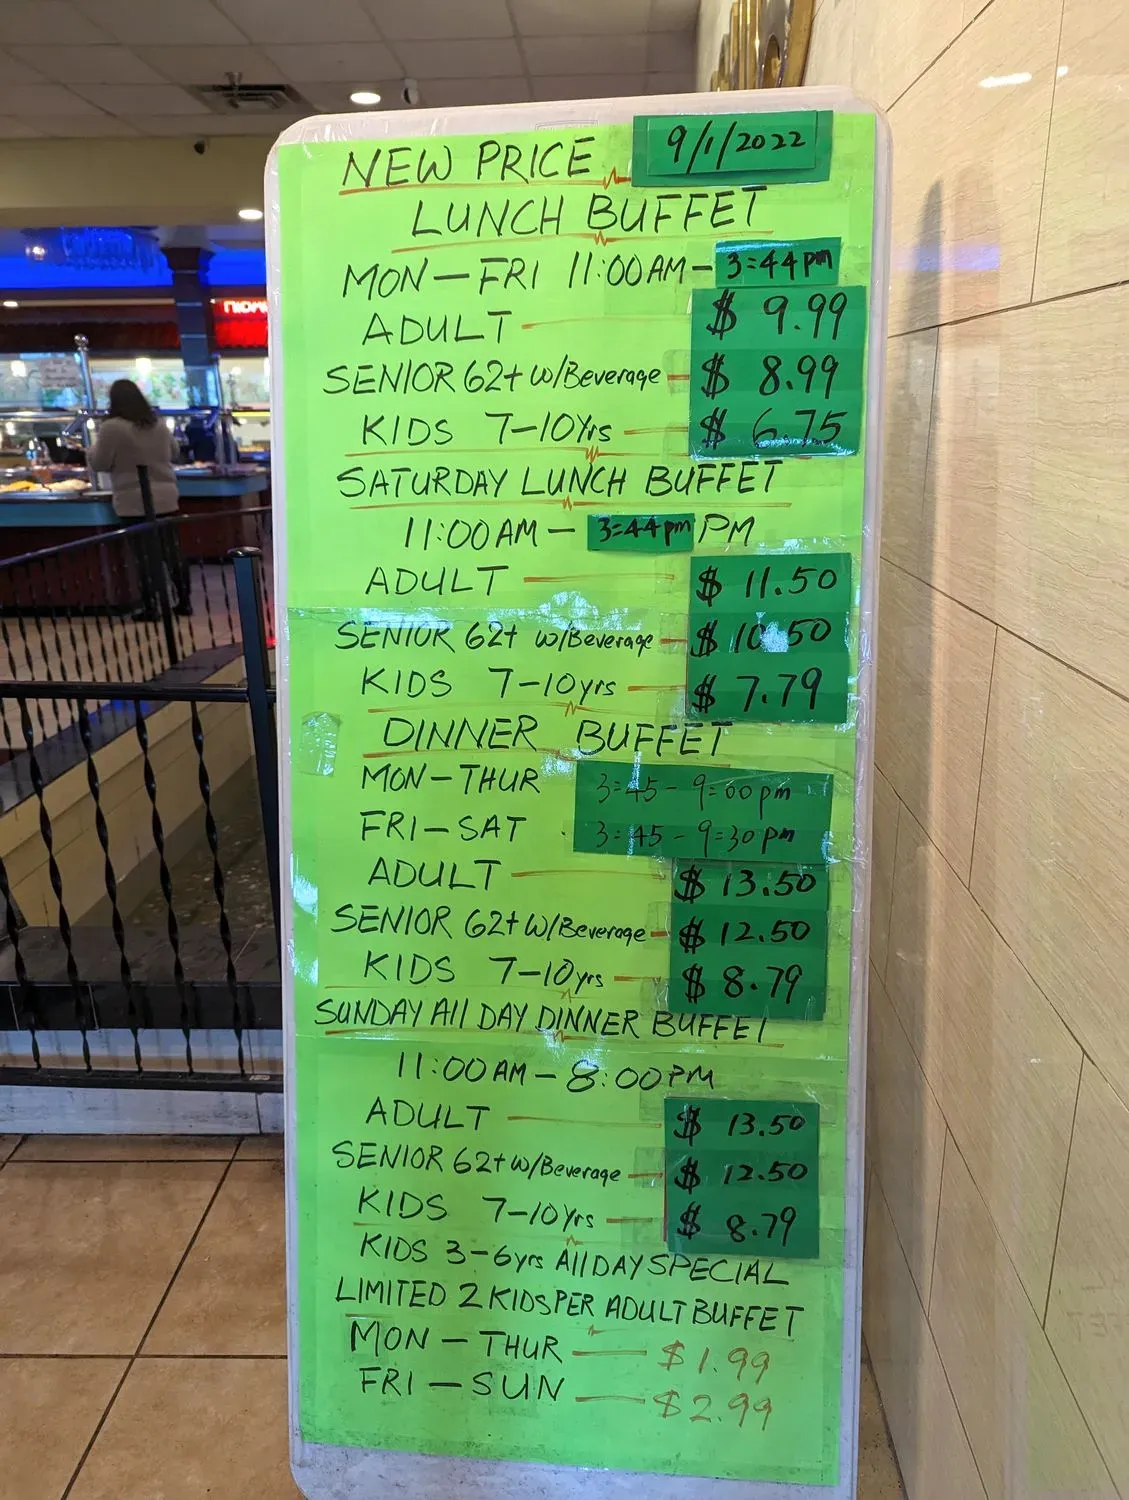 NEW PRICE 9/1/2022
LUNCH BUFFET
MON-FRI 11:00AM- 3:44pm
ADULT $ 9.99
SENIOR 62+ w/Beverage $ 8.99
KIDS 7-10Yrs $ 6.75
SATURDAY LUNCH BUFFET
11:00AM- 3:44pm PM
ADULT $ 11.50
SENIOR 62+ w/Beverage $ 10.50
KIDS 7-10yrs $ 7.79
DINNER BUFFET
MON-THUR 3:45-9:00pm
FRI-SAT 3:45-9:30pm
ADULT $ 13.50
SENIOR 62+ w/Beverage $ 12.50
KIDS 7-10yrs $ 8.79
SUNDAY All DAY DINNER BUFFET
11:00AM-8:00PM
ADULT $ 13.50
SENIOR 62+ w/Beverage $ 12.50
KIDS 7-10Yrs $ 8.79
KIDS 3-6yrs All DAY SPECIAL
LIMITED 2 KIDS PER ADULT BUFFET
MON-THUR $1.99
FRI-SUN $2.99